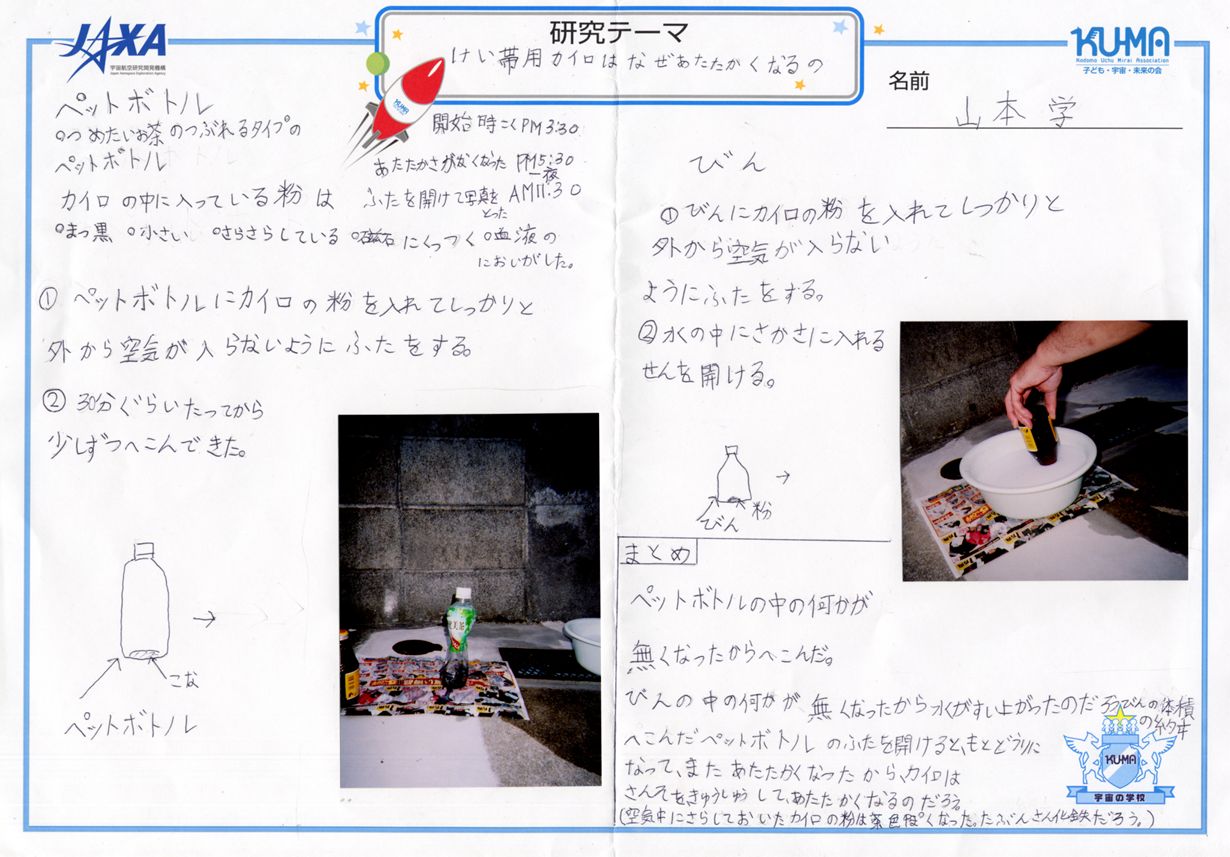 JAXA
宇宙航空研究開発機構
Japan Aerospace Exploration Agency
研究テーマ
けい帯用カイロはなぜあたたかくなるの
KU-MA
Kodomo Uchu Mirai Association
子ども・宇宙・未来の会
名前
山本学
ペットボトル
○つめたいお茶のつぶれるタイプの
ペットボトル
開始時こくPM3:30
あたたかさがなくなった PM5:30
一夜
ふたを開けて写真を AM11:30
とった
カイロの中に入っている粉は
○まっ黒 ○小さい ○さらさらしている ○磁石にくっつく ○血液の
においがした。
① ペットボトルにカイロの粉を入れてしっかりと
外から空気が入らないようにふたをする。
② 30分ぐらいたってから
少しずつへこんできた。
→
こな
ペットボトル
びん
①びんにカイロの粉を入れてしっかりと
外から空気が入らない
ようにふたをする。
②水の中にさかさに入れる
せんを開ける。
→
粉
びん
まとめ
ペットボトルの中の何かが
無くなったからへこんだ。
びんの中の何かが無くなったから水がすい上がったのだろう
びんの体積
の約
へこんだペットボトルのふたを開けると、もとどうりに
なって、またあたたかくなったから、カイロは
さんそをきゅうしゅうして、あたたかくなるのだろう。
(空気中にさらしておいたカイロの粉は茶色ぽくなった。たぶんさん化鉄だろう。)
KU-MA
宇宙の学校